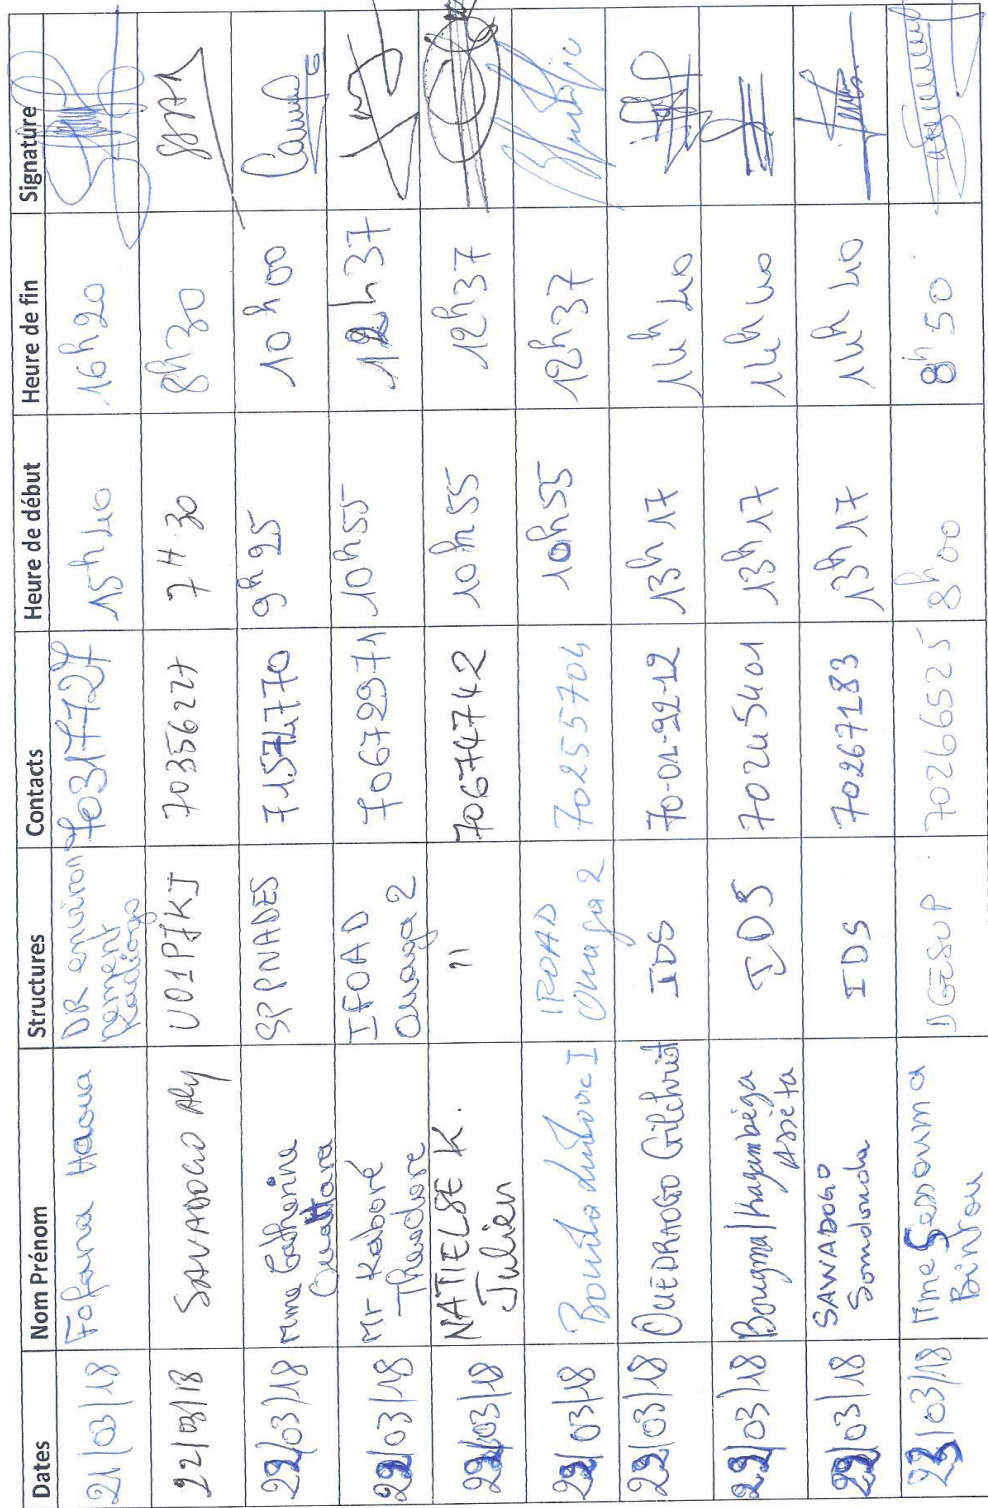 Dates Nom Prénom Structures Contacts Heure de début Heure de fin Signature
21/03/18 Fofana Haoua DR environ
nement
Kadiogo 70317727 15h40 16h20
22/03/18 SAVADOGO Aly UO1PJKJ 70356227 7H 30 8h30
22/03/18 Mme Catherine
Ouattara SPPNADES 71574770 9h25 10h00
22/03/18 Mr Kaboré
Theodore IFOAD
Ouaga 2 70672971 10h55 12h37
22/03/18 NATIELSE K.
Julien " 70674742 10h55 12h37
22/03/18 IFOAD
Ouaga 2 70255704 10h55 12h37
22/03/18 OUEDRAOGO Gilchrist IDS 70-01-92-12 13h17 14h40
22/03/18 Bougma/Kagambéga
Asséta IDS 70245401 13h17 14h40
22/03/18 SAWADOGO
Somdonda IDS 70267183 13h17 14h40
23/03/18 Mme Sessouma
Bintou DGESUP 70266525 8h00 8h50